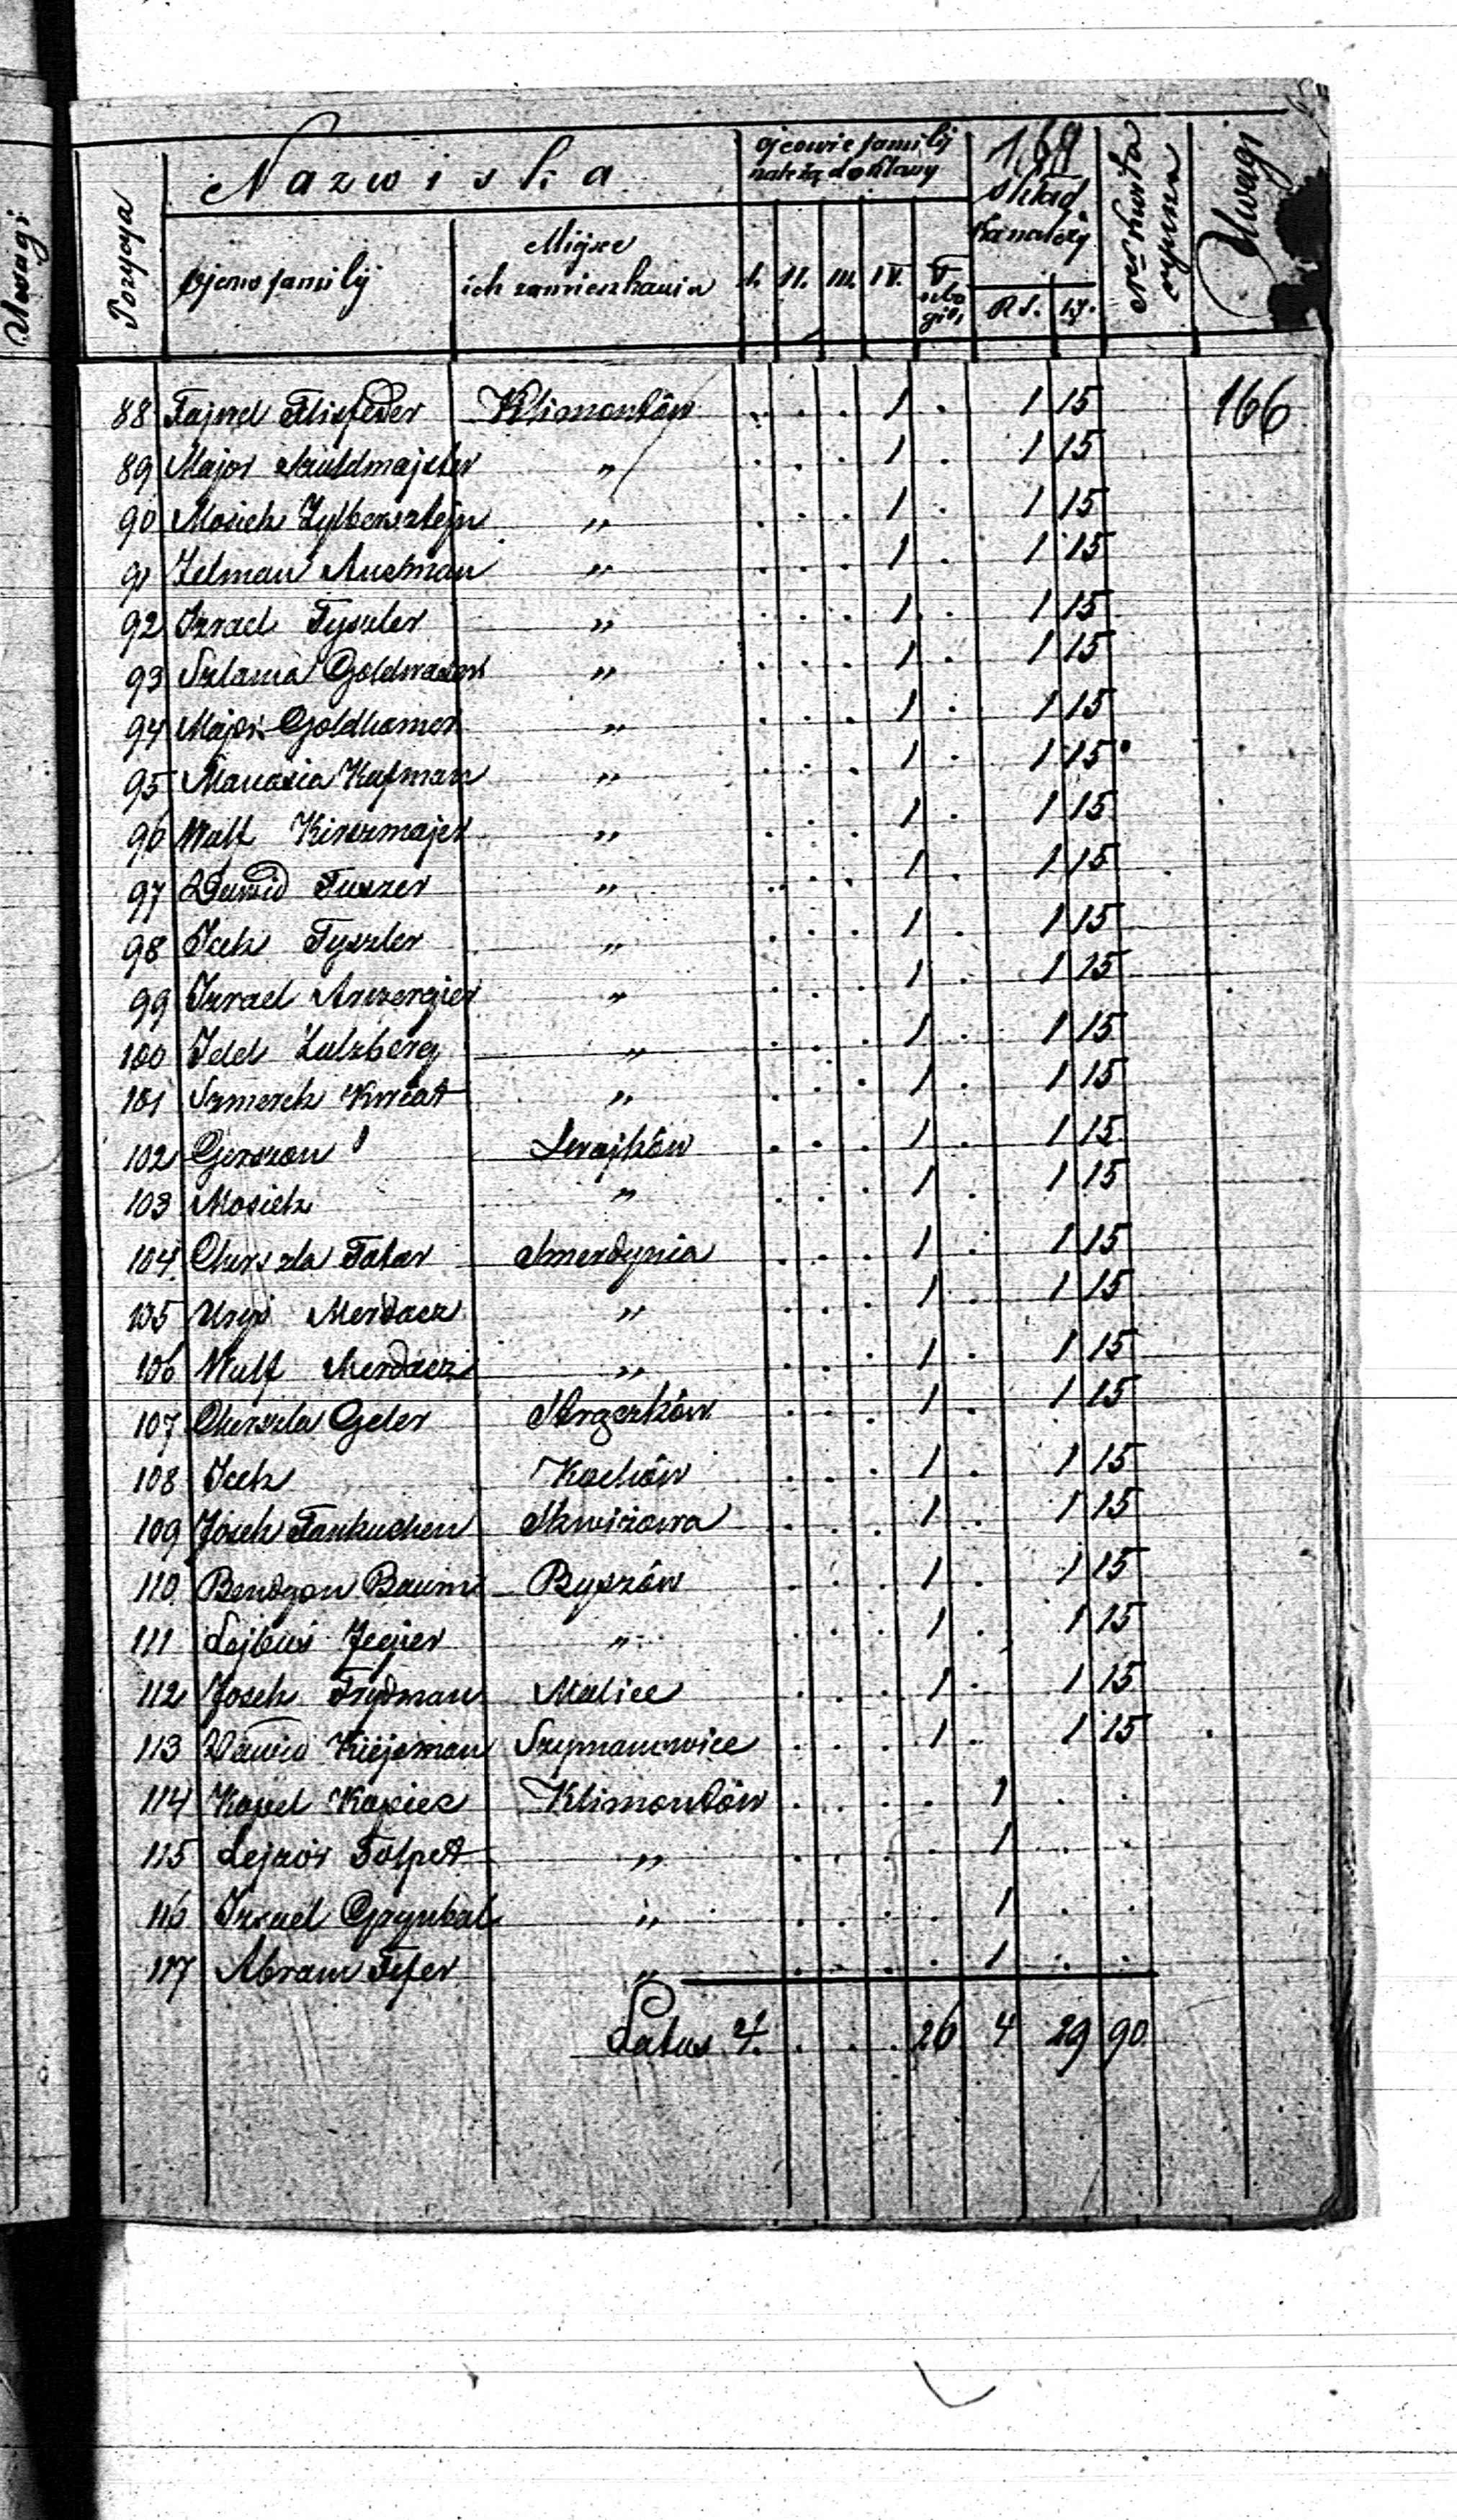 Uwagi
Pozycya
Nazwiska
ojcowie familij
należą do klassy
169
skład
Ka należy
Uwagi
ojców familij
Miejsce
ich zamieszkania
I. II. III. IV. V
ubo
gie,
RS.
166
88 Fajwel Flisfeder Klimontów . . . 1 . 1 15
89 Major Szuldmajster " . . . 1 . 1 15
90 Mosiek Zylbersztejn " . . . 1 . 1 15
91 Zelman Ausman " . . . 1 . 1 15
92 Izrael Fyszler " . . . 1 . 1 15
93 Szlama Goldwaser " . . . 1 . 1 15
94 Major Goldhamer " . . . 1 . 1 15
95 Manasia Kufman " . . . 1 . 1 15
96 Wulf Kirszmajer " . . . 1 . 1 15
97 Dawid Fuszer " . . . 1 . 1 15
98 Icek Fyszler " . . . 1 . 1 15
99 Izrael " . . . 1 . 1 15
100 Idel Zulzberg " . . . 1 . 1 15
101 Szmerek Kwiat " . . . 1 . 1 15
102 Gerszon . . . 1 . 1 15
103 Mosiek " . . . 1 . 1 15
104 Cherszla Tatar Smerdynia . . . 1 . 1 15
105 Uryś Merdacz " . . . 1 . 1 15
106 Wulf Merdacz " . . . 1 . 1 15
107 Cherszla Geler Strzeżków . . . 1 . 1 15
108 Icek Kochów . . . 1 . 1 15
109 Josek Fankuchen Skwirzowa . . . 1 . 1 15
110 Baum Byszów . . . 1 . 1 15
111 Lejbuś Jegier " . . . 1 . 1 15
112 Josek Frydman Malice . . . 1 . 1 15
113 Dawid Szymanowice . . . 1 . 1 15
114 Kopel Kapiec Klimontów . . . . 1 . .
115 Lejzor Folpet " . . . . 1 . .
116 Izrael Grynbal " . . . . 1 . .
117 Abram Fefer " . . . . 1 . .
Latus 4. . . . 26 4 29 90